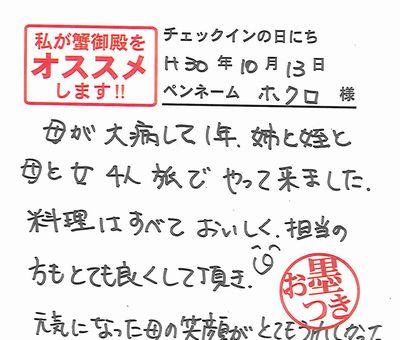 私が蟹御殿を
オススメ
します!!
チェックインの日にち
H30年10月13日
ペンネーム ホクロ 様
母が大病して1年、姉と姪と
母と女4人旅でやって来ました.
料理はすべておいしく、担当の
方もとても良くして頂き、
墨
おつき
元気になった母の笑顔がとてもうれしかった